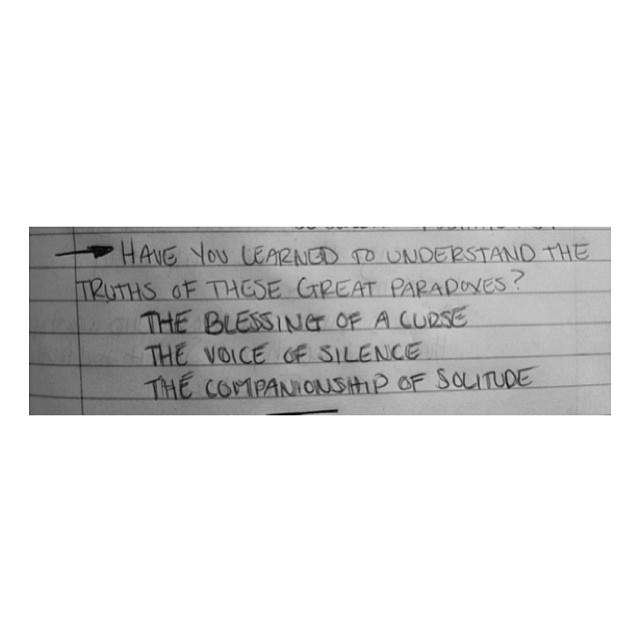 → HAVE YOU LEARNED TO UNDERSTAND THE
TRUTHS OF THESE GREAT PARADOXES?
THE BLESSING OF A CURSE
THE VOICE OF SILENCE
THE COMPANIONSHIP OF SOLITUDE